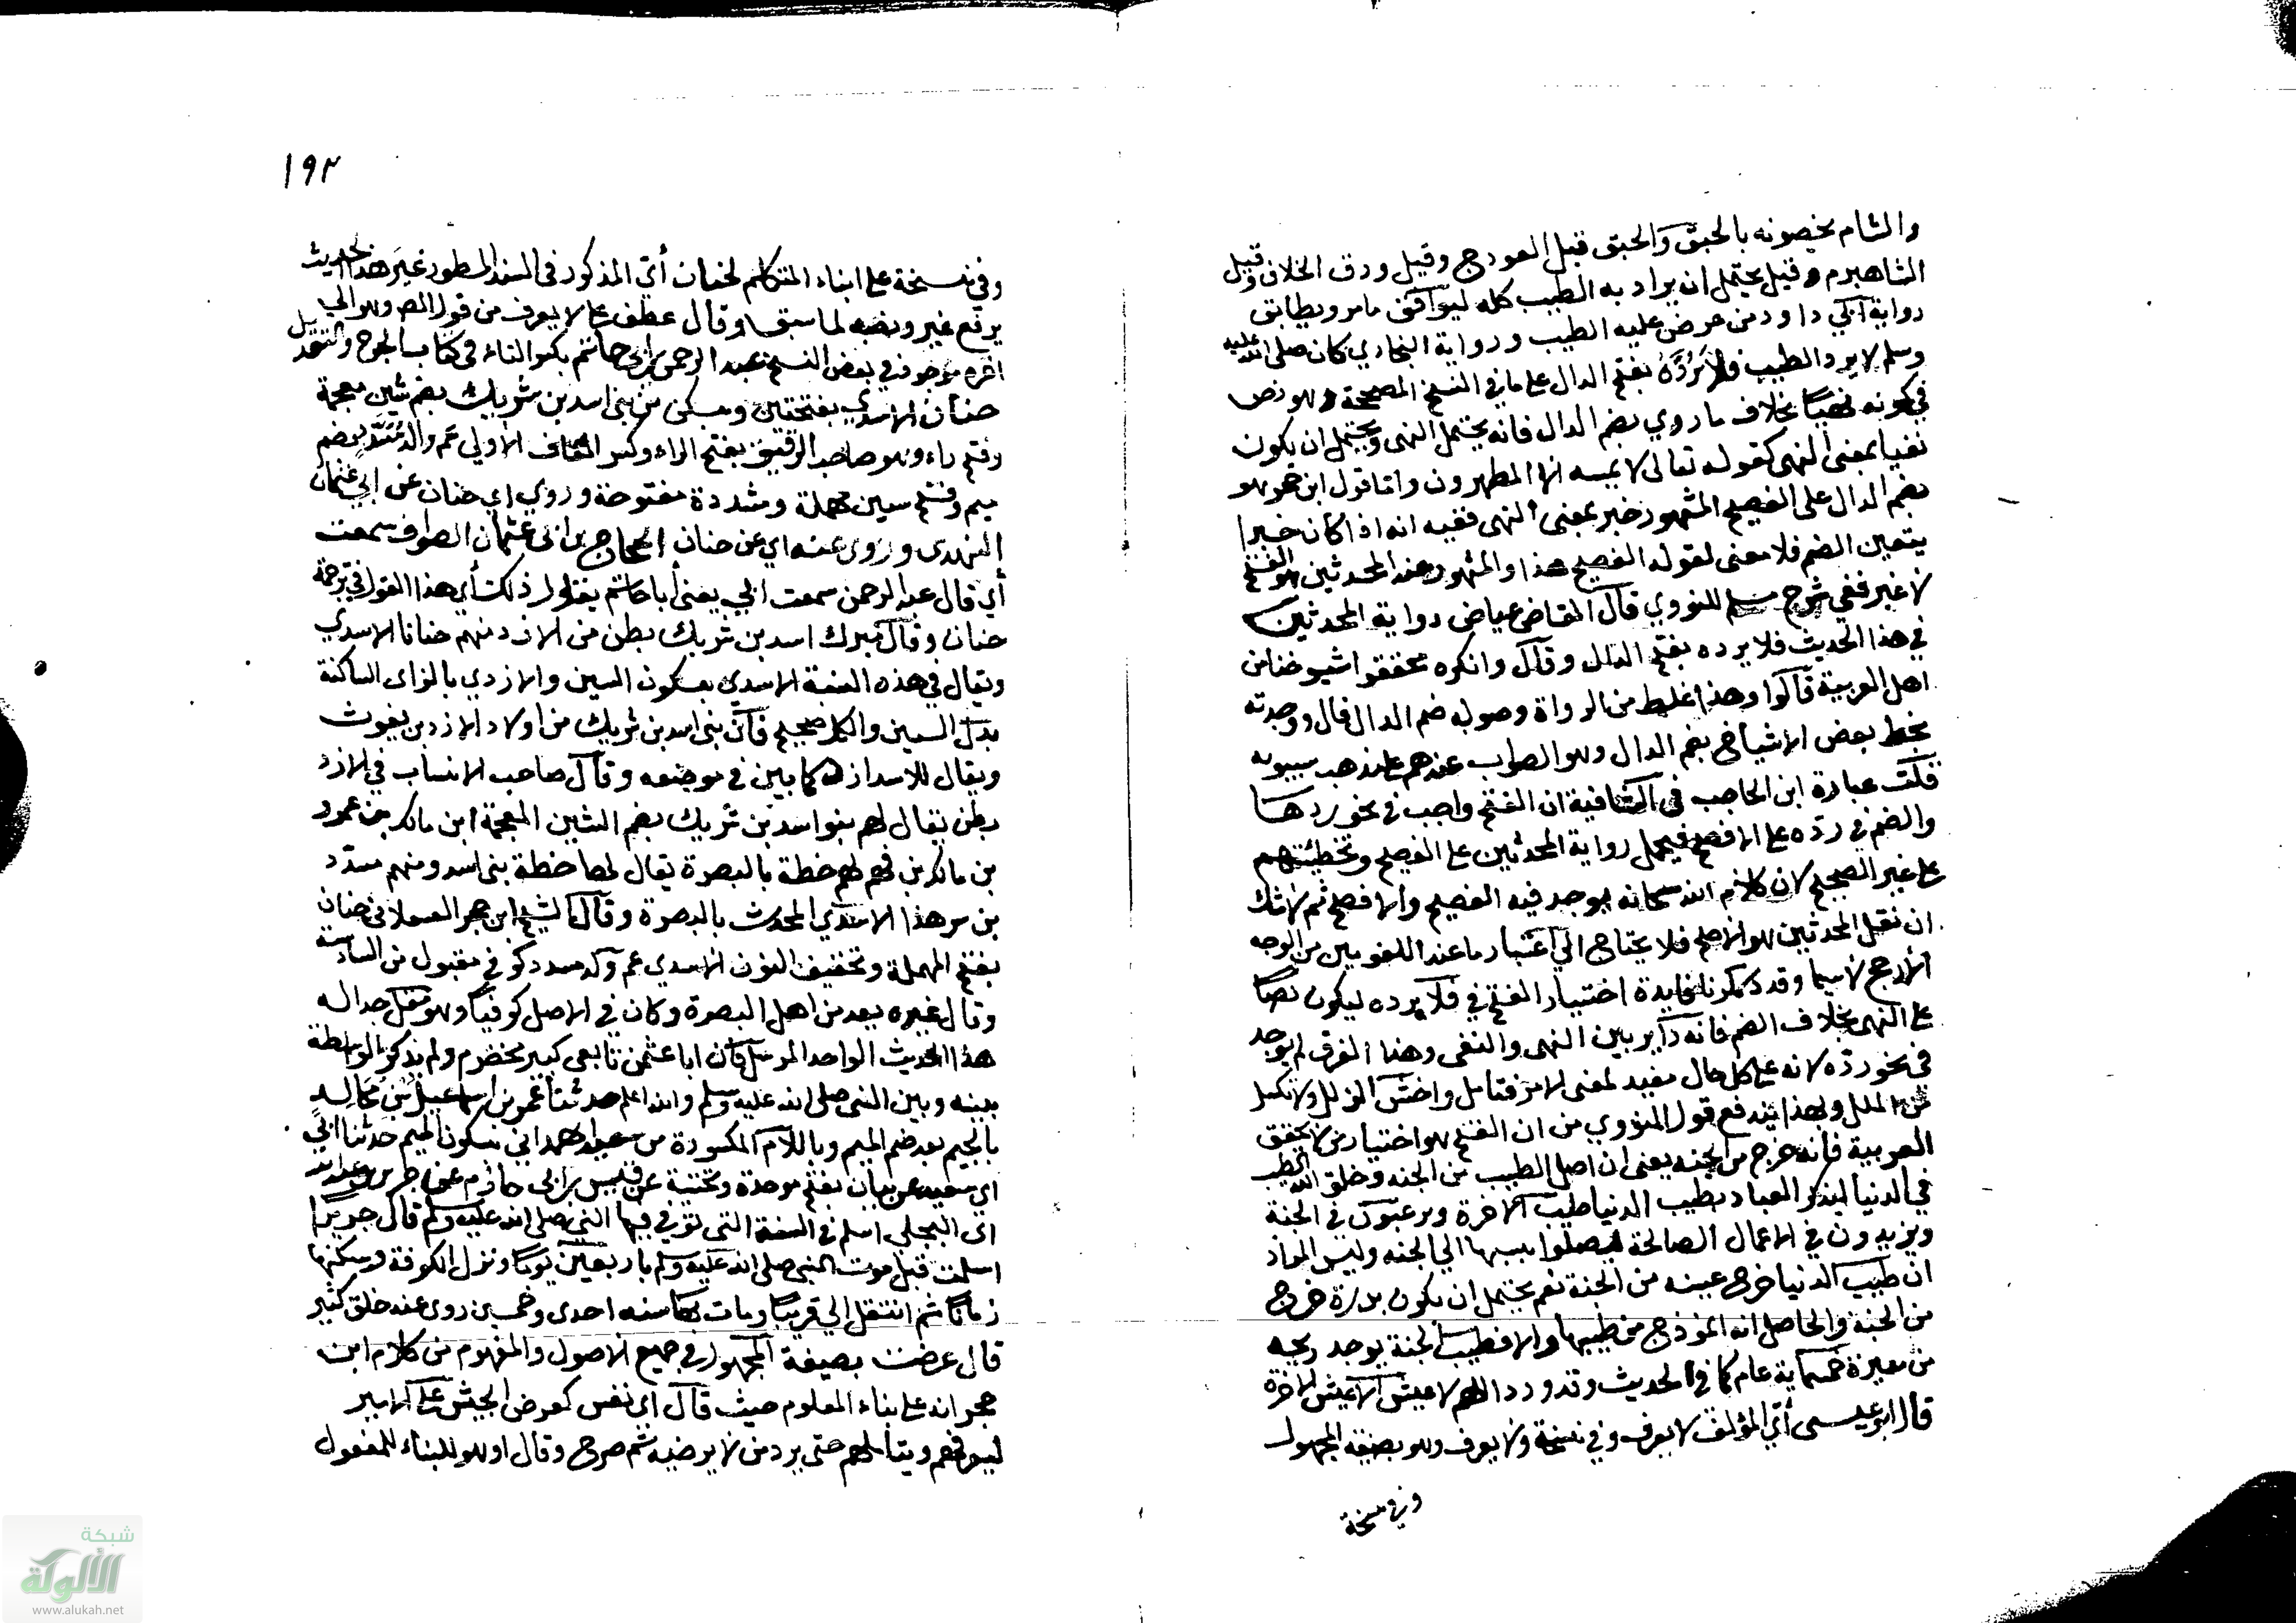 والشام يخصونه بالحبق والحبق قيل الفودج وقيل ورق الخلاف وقيل
الشاهبرم وقيل يحتمل ان يراد به الطيب كله ليوافق مامر ويطابق
رواية ابي داود من عرض عليه الطيب ورواية البخاري كان صلى الله عليه
وسلم لا يرد الطيب فلا يرده بفتح الدال على ما في النسخ المصححة وهو نص
في كونه نهيا بخلاف ما روي بضم الدال فانه يحتمل النهي ويحتمل ان يكون
نفيا بمعنى النهي كقوله تعالى لا يمسه الا المطهرون واما قول ابن حجر هو
بضم الدال على الفصيح المشهور خبر بمعنى النهي ففيه انه اذا كان خبرا
يتعين الضم فلا معنى لقوله الفصيح هذا والمشهور عند المحدثين هو الفتح
لا غير ففي شرح مسلم للنووي قال القاضي عياض رواية المحدثين
في هذا الحديث فلا يرده بفتح الدال وقال وانكره محققوا شيوخنا من
اهل العربية قالوا وهذا غلط من الرواة وصوابه ضم الدال قال ووجدته
بخط بعض الاشياخ بضم الدال وهو الصواب عندهم على مذهب سيبويه
قلت عبارة ابن الحاجب في الشافية ان الفتح واجب في نحو ردها
والضم في رده على الافصح فيحمل رواية المحدثين على الفصيح وتخطئتهم
على غير الصحيح لان كلام الله سبحانه يوجد فيه الفصيح والافصح ثم لا شك
ان نقل المحدثين هو الاصح فلا يحتاج الى اعتبار ما عند اللغويين من الوجه
الارجح لاسيما وقد ذكرنا فايدة اختيار الفتح في فلا يرده ليكون نصا
على النهي بخلاف الضم فانه داير بين النهي والنفي وهذا الفرق لم يوجد
في نحو رده لانه على كل حال مفيد لمعنى الامر فتامل واخش الزلل ولا تكسل
من الملل وبهذا يندفع قول النووي من ان الفتح هو اختيار من لا يحقق
العربية فانه خرج من الجنة يعني ان اصل الطيب من الجنه وخلق الله الطيب
في الدنيا ليذكر العباد بطيب الدنيا طيب الاخرة ويرغبون في الجنة
ويزيدون في الاعمال الصالحة ليصلوا بسببها الى الجنه وليس المراد
ان طيب الدنيا خرج عينه من الجنة نعم يحتمل ان يكون بذره خرج
من الجنة والحاصل انه انموذج من طيبها والا فطيب الجنة يوجد ريحه
من مسيرة خمسماية عام كما في الحديث وقد ورد اللهم لا عيش الا عيش الاخرة
قال ابو عيسى أي المؤلف لا يعرف وفي نسخة ولا يعرف وهو بصيغة المجهول
وفي نسخة
١٩٢
وفي نسخة على ابناء المتكلم لحنان أي المذكور في السند المسطور غير هذا الحديث
برفع غير ونصبه لما سبق وقال عطف على لا يعرف من قول المص وهو الى
اخره موجود في بعض النسخ عبد الرحمن بن ابي حاتم بكسر التاء في كتاب الجرح والتعديل
حنان الاسدي بفتحتين ويسكن من بني اسد بن شريك بضم شين معجمة
وفتح راء وهو صاحب الرقيق بفتح الراء وكسر القاف الاولى عم والد مسدد بضم
ميم وفتح سين مهملة ومشددة مفتوحة وروى اي حنان عن ابي عثمان
النهدي وروى عنه اي عن حنان الحجاج بن ابي عثمان الصواف سمعت
أي قال عبد الرحمن سمعت ابي يعني أبا حاتم يقول ذلك أي هذا القول في ترجمة
حنان وقال ميرك اسد بن شريك بطن من الازد منهم حنانا الاسدي
ويقال في هذه النسبة الاسدي بسكون السين والازدي بالزاي الساكنة
بدل السين والكل صحيح فان بني اسد بن شريك من اولاد الازد بن يغوث
ويقال للاسد ازد كما بين في موضعه وقال صاحب الانساب في الازد
بطن يقال لهم بنو اسد بن شريك بضم الشين المعجمة ابن مالك بن عمرو
بن مالك بن فهم لهم خطة بالبصرة يقال لها خطة بني اسد ومنهم مسدد
بن مسرهد الاسدي المحدث بالبصرة وقال الشيخ ابن حجر العسقلاني حنان
بفتح المهملة وتخفيف النون الاسدي عم والد مسدد كوفي مقبول من السادسة
وقال غيره يعد من اهل البصرة وكان في الاصل كوفيا وهو مقل جدا له
هذا الحديث الواحد المرسل فان ابا عثمن تابعي كبير مخضرم ولم يذكر الواسطة
بينه وبين النبي صلى الله عليه وسلم والله اعلم حدثنا عمر بن اسماعيل بن مجالد
بالجيم بعد ضم الميم وباللام المكسورة من سعيد الهمداني بسكون الميم حدثنا ابي
اي سعيد عن بيان بفتح موحدة وتحتية عن قيس بن ابي حازم عن جرير بن عبد الله
اي البجلي اسلم في السنة التي توفي فيها النبي صلى الله عليه وسلم قال جرير
اسلمت قبل موت النبي صلى الله عليه وسلم باربعين يوما ونزل الكوفة وسكنها
زمانا ثم انتقل الى قرقيسا ومات بها سنه احدى وخمسين روى عنه خلق كثير
قال عرضت بصيغة المجهول في جميع الاصول والمفهوم من كلام ابن
حجر انه على بناء المعلوم حيث قال اي نفسي كعرض الجيش على الامير
ليعرفهم ويتاملهم حتى يرد من لا يرضيه ثم صرح وقال او هو للبناء للمفعول
شبكة
الألوكة
www.alukah.net